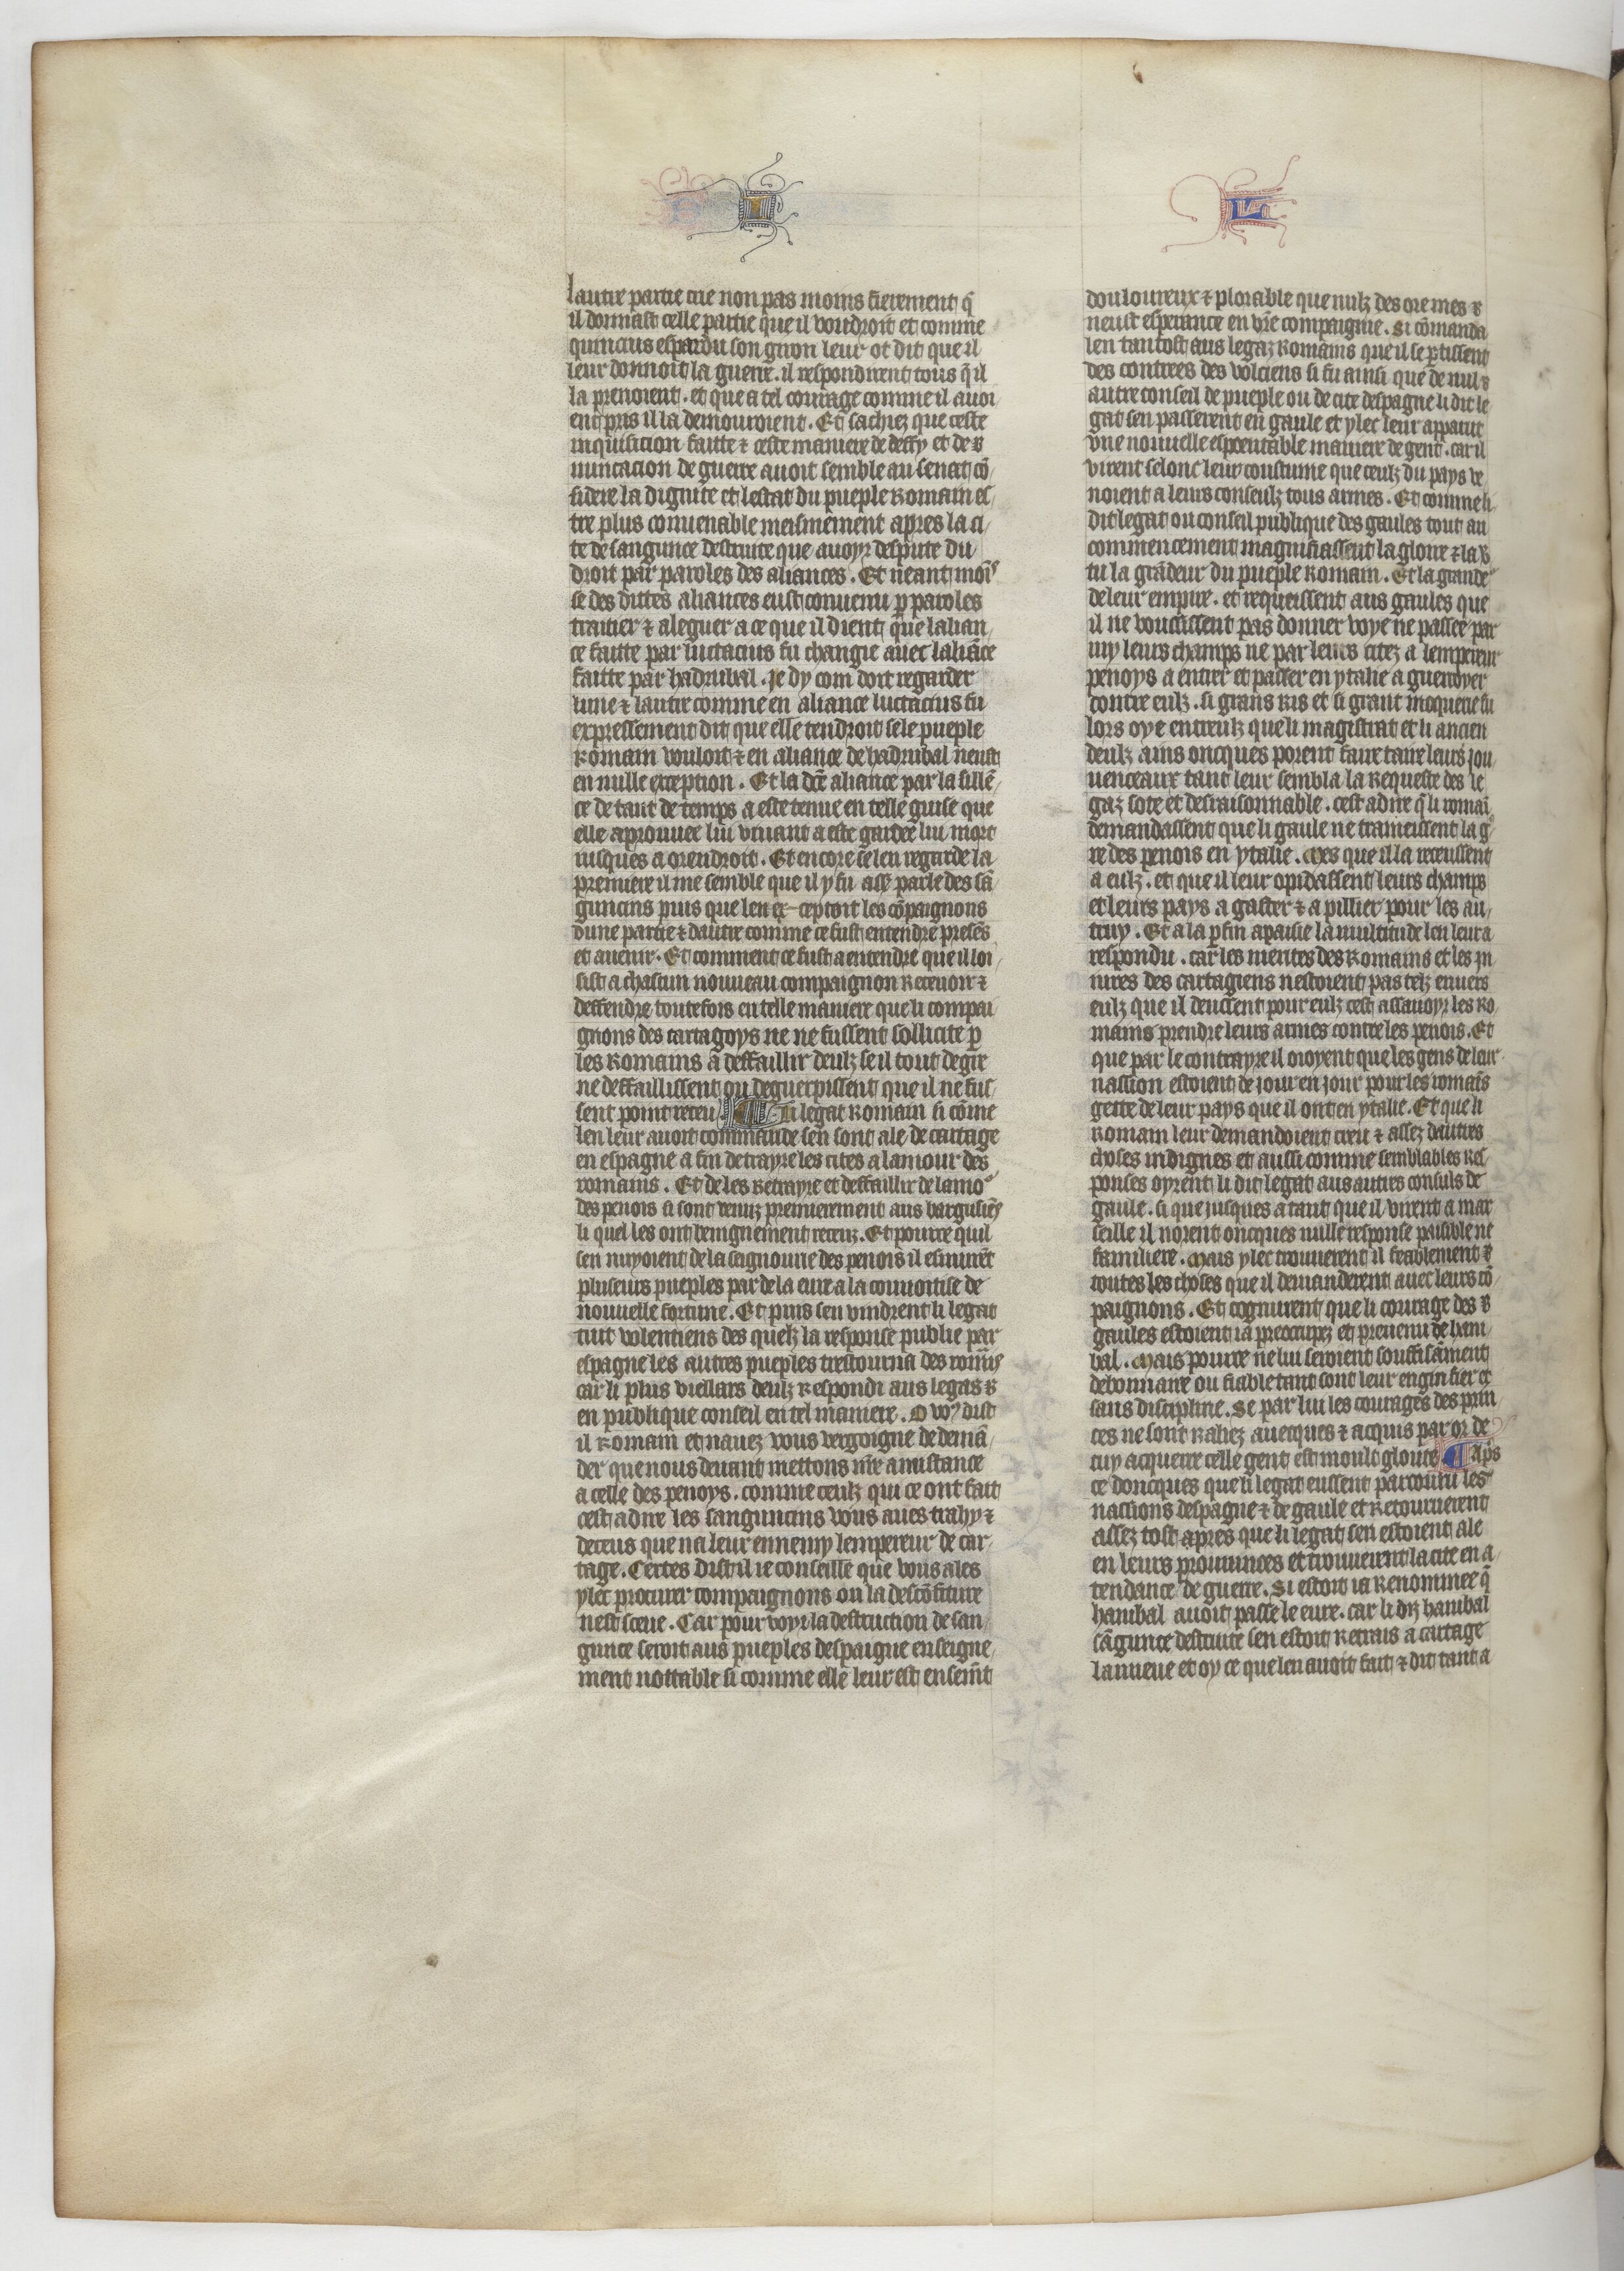 I
L
lautre partie crie non pas moins fierement q̃
il donnast celle partie que il voudroit et comme
quinctus espardu son gyron leur ot dit que il
leur donnoit la guerre. il respondirent tous q̃ il
la prenoient. et que a tel courage comme il avoi
ent pris il la demouroient. Et sachiez que ceste
inquisicion faitte ⁊ ceste maniere de deffy et de
nunciacion de guerre avoit semble au senat cō
sidere la dignite et lestat du pueple Romain es
tre plus convenable meismement apres la ci
te de sangunce destruite que avoyr despute du
droit par paroles des aliances. Et neant moīs
se des dittes aliances eust convenu p̱ paroles
traitier ⁊ aleguer a ce que il dient que lalian
ce faitte par luctacius fu changie avec laliāce
faitte par hadrubal. je dy com doit regarder
lune ⁊ lautre comme en aliance luctacius fu
expressement dit que elle tendroit se le pueple
Romain vouloit ⁊ en aliance de hadrubal neut
en nulle exception. Et la dc̄e aliance par la sillē
ce de tant de temps a este tenue en telle guise que
elle aprouvee lui vivant a este gardee lui mort
iusques a orendroit. Et encore se len regarde la
premiere il me semble que il y fu asses parle des sā
guncins puis que len ex-ceptoit les cōpaignons
dune partie ⁊ dautre comme ce fust entendre presēs
et avenir. Et comment ce fust a entendre que il loi
sist a chascun nouveau compaignon Recevoir ⁊
deffendre toutefois en telle maniere que li compai
gnons des cartagoys ne ne fussent sollicite p̱
les Romains a deffaillir deulz se il tout de gre
ne deffaillissent ou deguerpissent que il ne fus
sent point receu ¶ Li legat Romain si cōme
len leur avoit commande sen sont ale de cartage
en espagne a fin de trayre les cites a lamour des
romains. Et de les Retrayre et deffaillir de lamor
des penois si sont venuz premierement aus bargusiēs
li quel les ont benignement receuz. Et pource quil
sen nuyoient de la seignourie des penois il esmurēt
pluseurs pueples par dela eure a la couvoitise de
nouvelle fortune. Et puis sen vindrent li legat
aus volentiens des quelz la response publie par
espagne les autres pueples trestourna des romīs
car li plus viellars deulz Respondi aus legas
en publique conseil en tel maniere. O vo9 dist
il Romain et navez vous vergoigne de demā
der que nous devant mettons nr̄e amistance
a celle des penoys. comme ceulz qui ce ont fait
cest a dire les sanguncins vous aves trahy ⁊
deceus que na leur ennemy lempereur de car
tage. Certes dist il ie conseille que vous ales
ylec procurer compaignons ou la descōfiture
nest sceue. Car pour voyr la destruction de san
gunce seroit aus pueples despaigne enseigne
ment nottable si comme elle leur est ensem̄t
douloureux ⁊ plorable que nulz des ore mes
neust esperance en vr̄e compaignie. Si cōmanda
len tantost aus legaz Romains que il se p̱tissent
des contrees des volciens si fu ainsi que de nul
autre conseil de pueple ou de cite despagne li dit le
gat sen passerent en gaule et ylec leur apparut
une nouvelle espoentable maniere de gent. car il
virent selonc leur coustume que ceulz du pays ve
noient a leurs conseulz tous armes. Et comme li
dit legat ou conseil publique des gaules tout au
commencement magnifiassent la gloire ⁊ la v̄
tu la grādeur du pueple Romain. Et la grande
de leur empire. et requeissent aus gaules que
il ne voucissent pas donner voye ne passee par
my leurs champs ne par leurs citez a lempereur
penoys a entrer et passer en ytalie a guerroyer
contre eulz. si grans Ris et si grant moquerie fu
lors oye entreulz que li magistrat et li ancien
deulz ains oncques porent faire taire leurs jou
venceaux tant leur sembla la Requeste des le
gaz sote et desraisonnable. cest a dire q̃ li romaī
demandassent que li gaule ne trameissent la g̃
re des penois en ytalie. Mes que il la receussent
a eulz. et que il leur opidassent leurs champs
et leurs pays a gaster ⁊ a pillier pour les au
truy. Et a la p̱ fin apaisie la multitude len leur a
respondu. car les merites des Romains et les in
iures des cartagiens nestoient pas telz envers
eulz que il deussent pour eulz cest assavoyr les Ro
mains prendre leurs armes contre les penois. Et
que par le contrayre il ooyent que les gens de leur
nassion estoient de jour en jour pour les romaīs
gette de leur pays que il ont en ytalie. Et que li
Romain leur demandoient treu ⁊ assez dautres
choses indignes et aussi comme semblables Res
ponses oyrent li dit legat aus autres consulz de
gaule. si que jusques a tant que il virent a mar
seille il norent oncques nulle response paisible ne
familiere. Mais ylec trouverent il feablement
toutes les choses que il demanderent avec leurs cō
paignons. Et cognurent que li courage des
gaules estoient ia preoccupez et prevenu de hani
bal. Mais pource ne lui seroient souffisāment
debonnaire ou fiable tant sont leur engin fier ⁊
sans discipline. Se par lui les courages des prin
ces ne sont Raliez avecques ⁊ acquis par or de
cuy acquerre celle gent est moult gloute ¶ Ap̄s
ce doncques que li legat eussent parcouru les
nassions despagne ⁊ de gaule et Retournerent
assez tost apres que li legat sen estoient ale
en leurs provinces et trouverent la cite en a
tendance de guerre. Si estoit ia Renommee q̃
hanibal avoit passe le eure. car li diz hanibal
sāgunce destruite sen estoit Retrais a cartage
la nueve et oy ce que len avoit fait ⁊ dit tant a